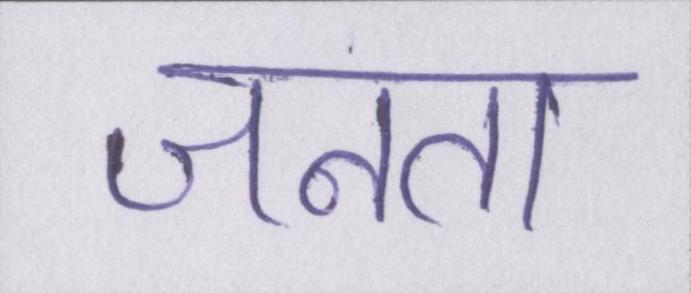 जनता